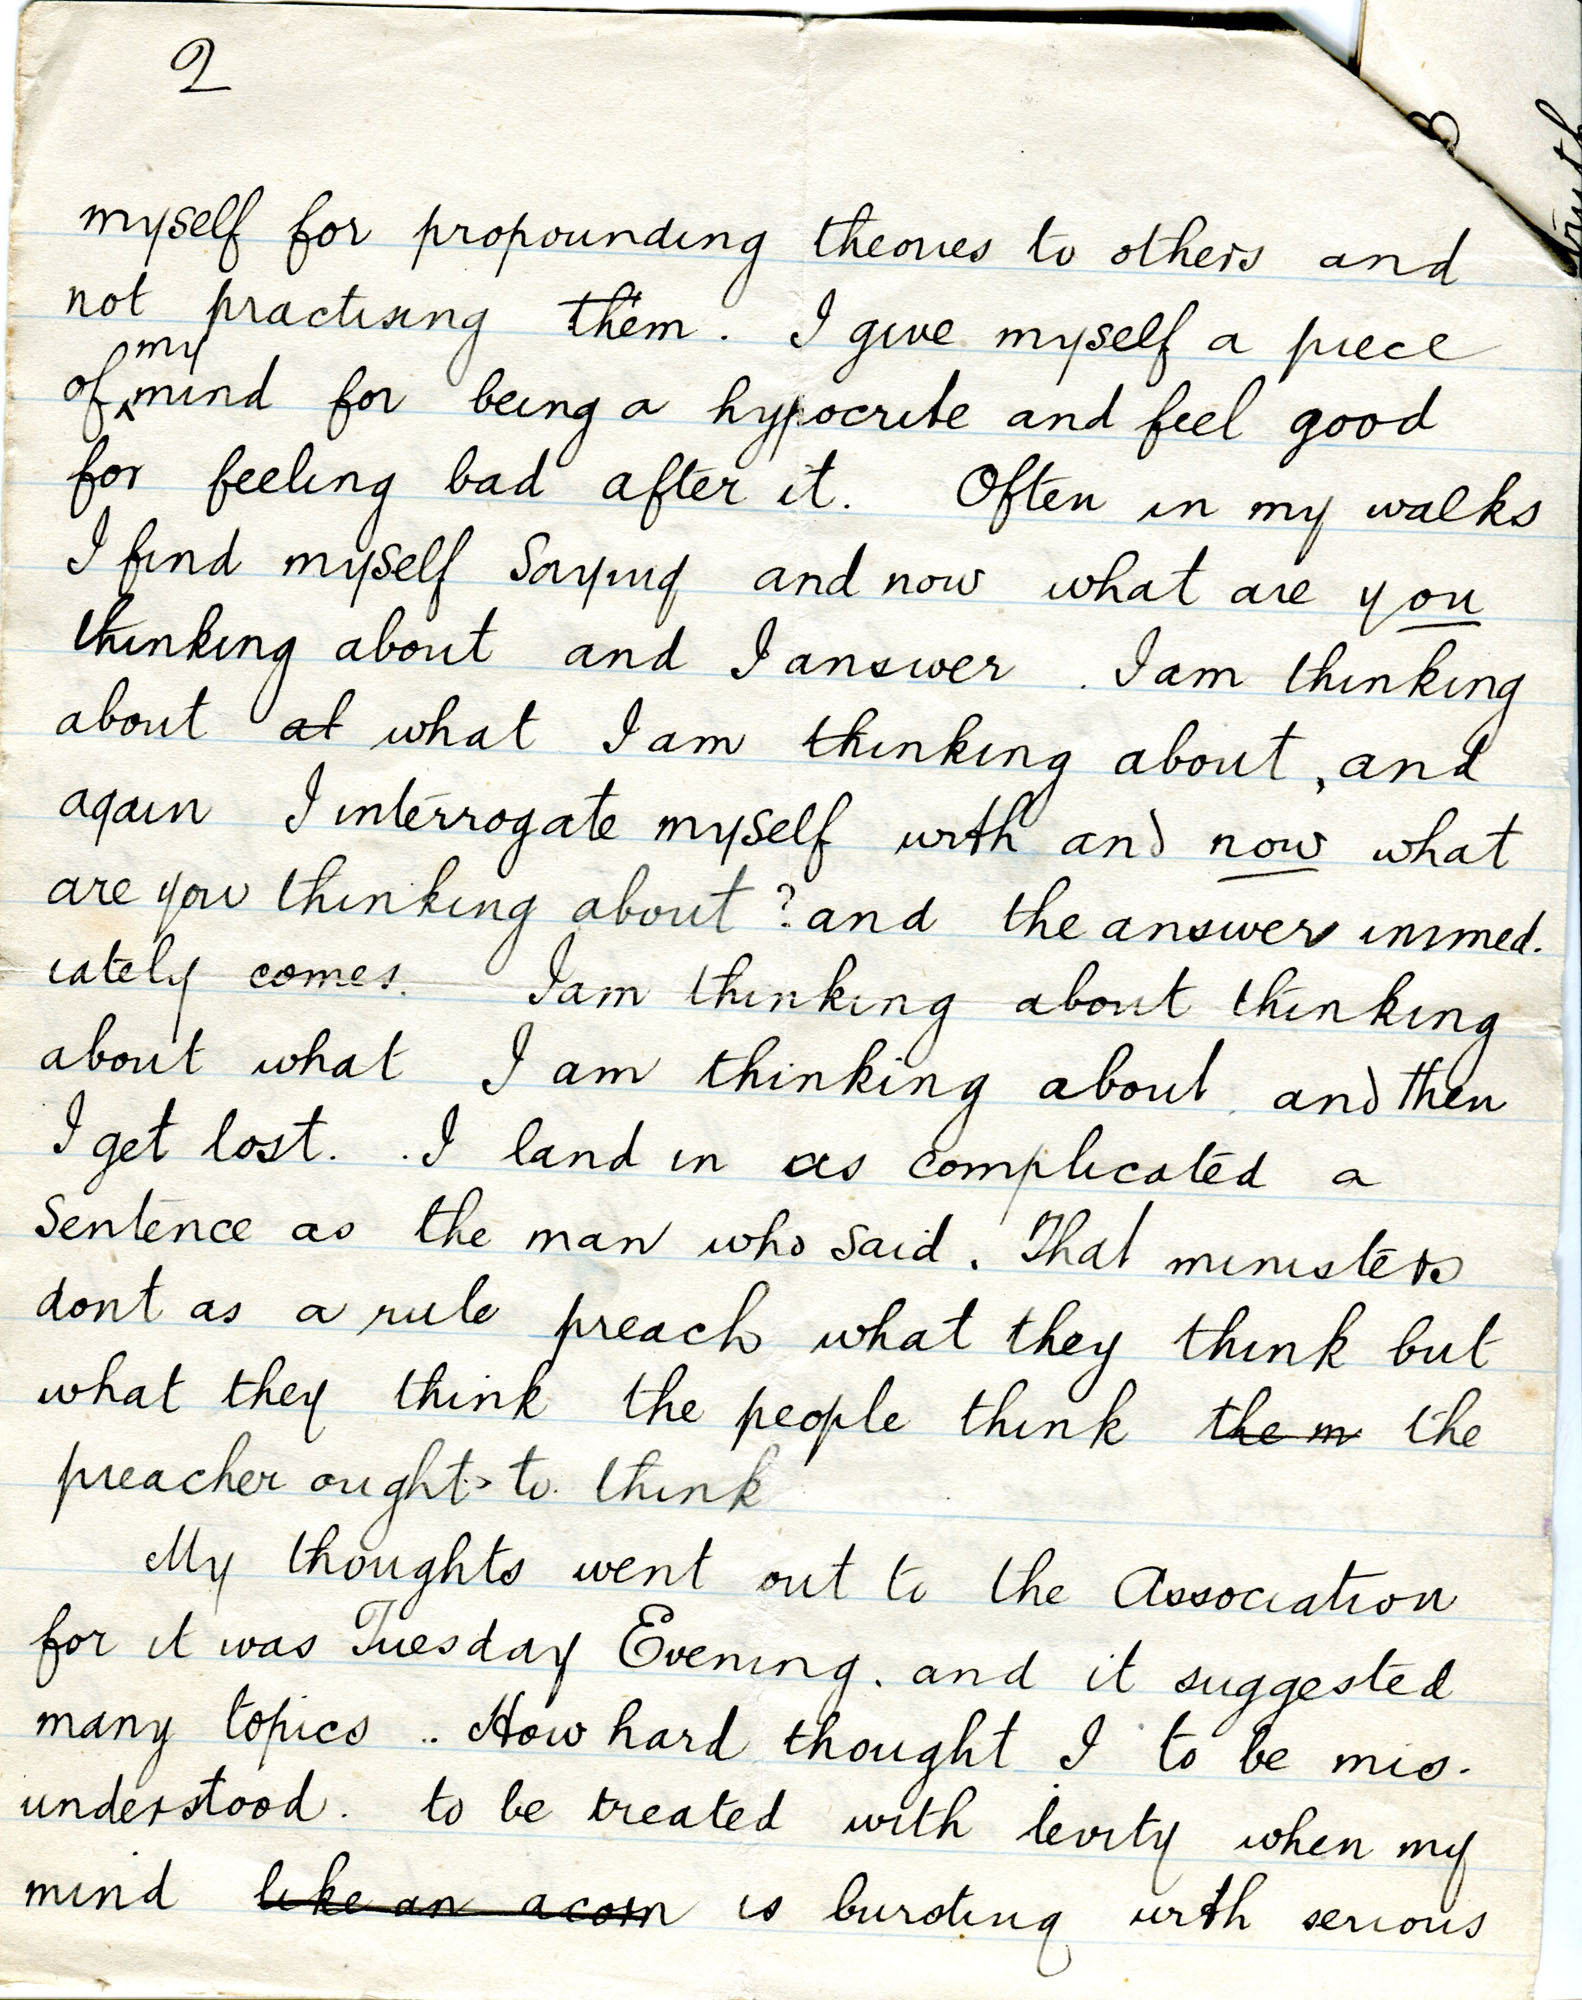 2
myself for propounding theories to others and
not practising them. I give myself a piece
of my mind for being a hypocrite and feel good
for feeling bad after it. Often in my walks
I find myself saying and now what are you
thinking about and I answer. I am thinking
about at what I am thinking about, and
again I interrogate myself with and now what
are you thinking about? and the answer immed.
iately comes. I am thinking about thinking
about what I am thinking about and then
I get lost. . I land in as complicated a
sentence as the man who said. That ministers
dont as a rule preach what they think but
what they think the people think them the
preacher ought to think
My thoughts went out to the Association
for it was Tuesday Evening. and it suggested
many topics .. How hard thought I to be mis.
understood. to be treated with levity when my
mind like an acorn is bursting with serious